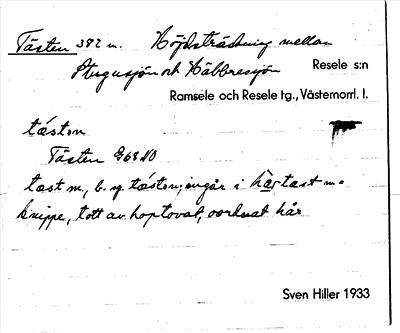 Tåsten 382 m. Höjdsträckning mellan
Stugusjön och Häbbresjön
Resele s:n
Ramsele och Resele tg., Västernorrl. l.
tåston
Tåsten G68 NO
tast m, b. sg. tåston; ingår i hårtast m =
knippe, tott av hoptovat, oordnat hår
Sven Hiller 1933